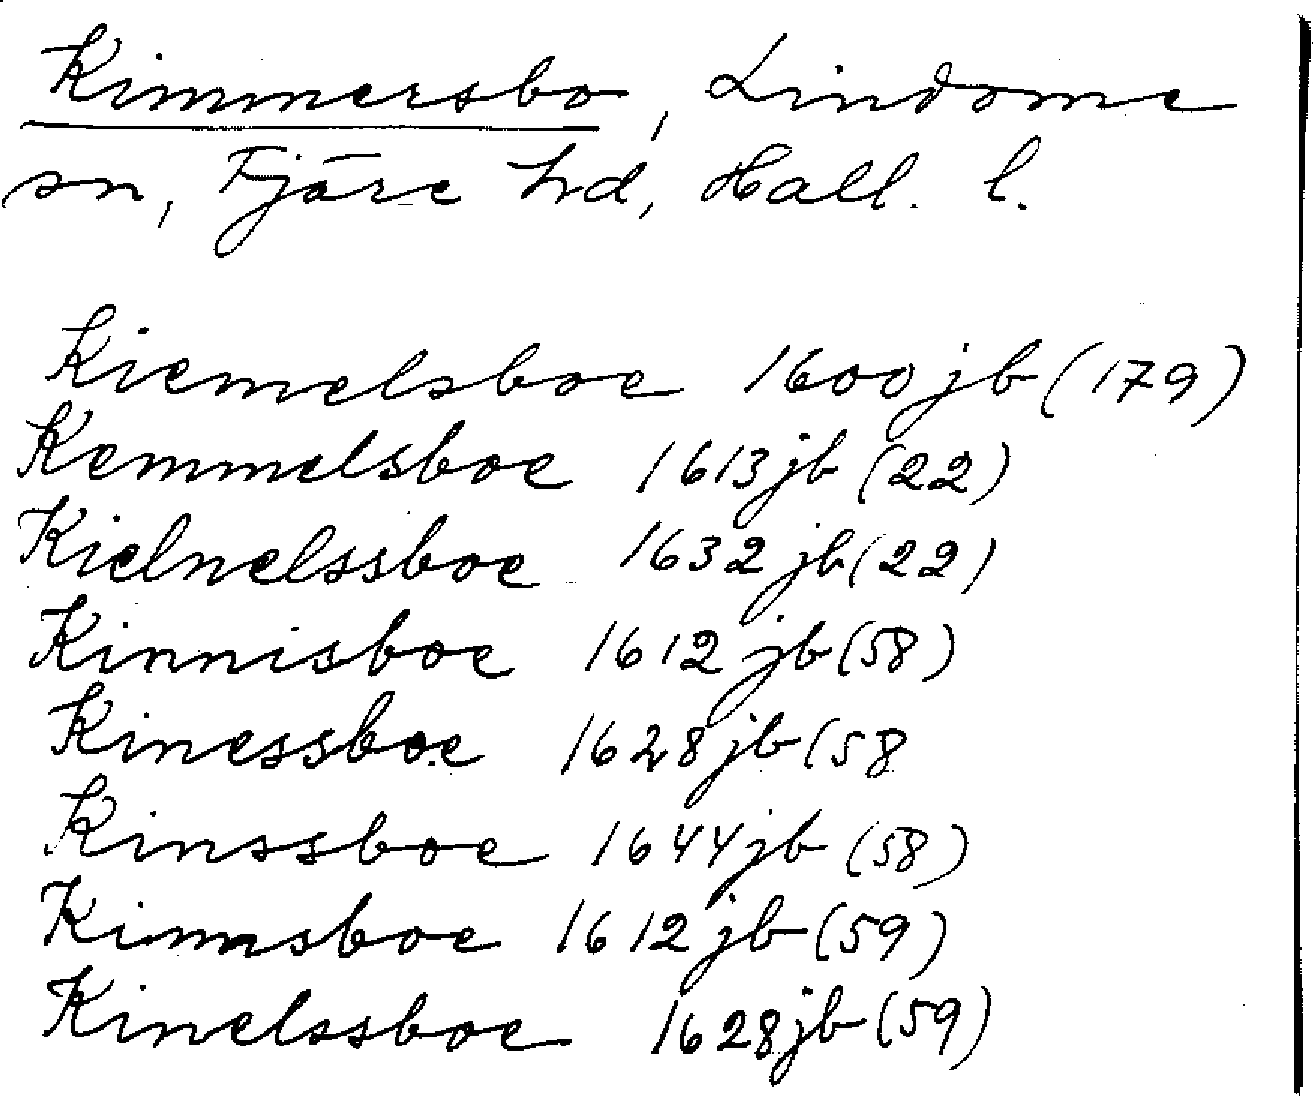 Kimmersbo, Lindome
sn, Fjäre hd, Hall. l.
Kiemelsboe 1600 jb (179)
Kemmelsboe 1613 jb (22)
Kielnelssboe 1632 jb (22)
Kinnisboe 1612 jb (58)
Kinessboe 1628 jb (58
Kinssboe 1644 jb (58)
Kimmsboe 1612 jb (59)
Kinelssboe 1628 jb (59)